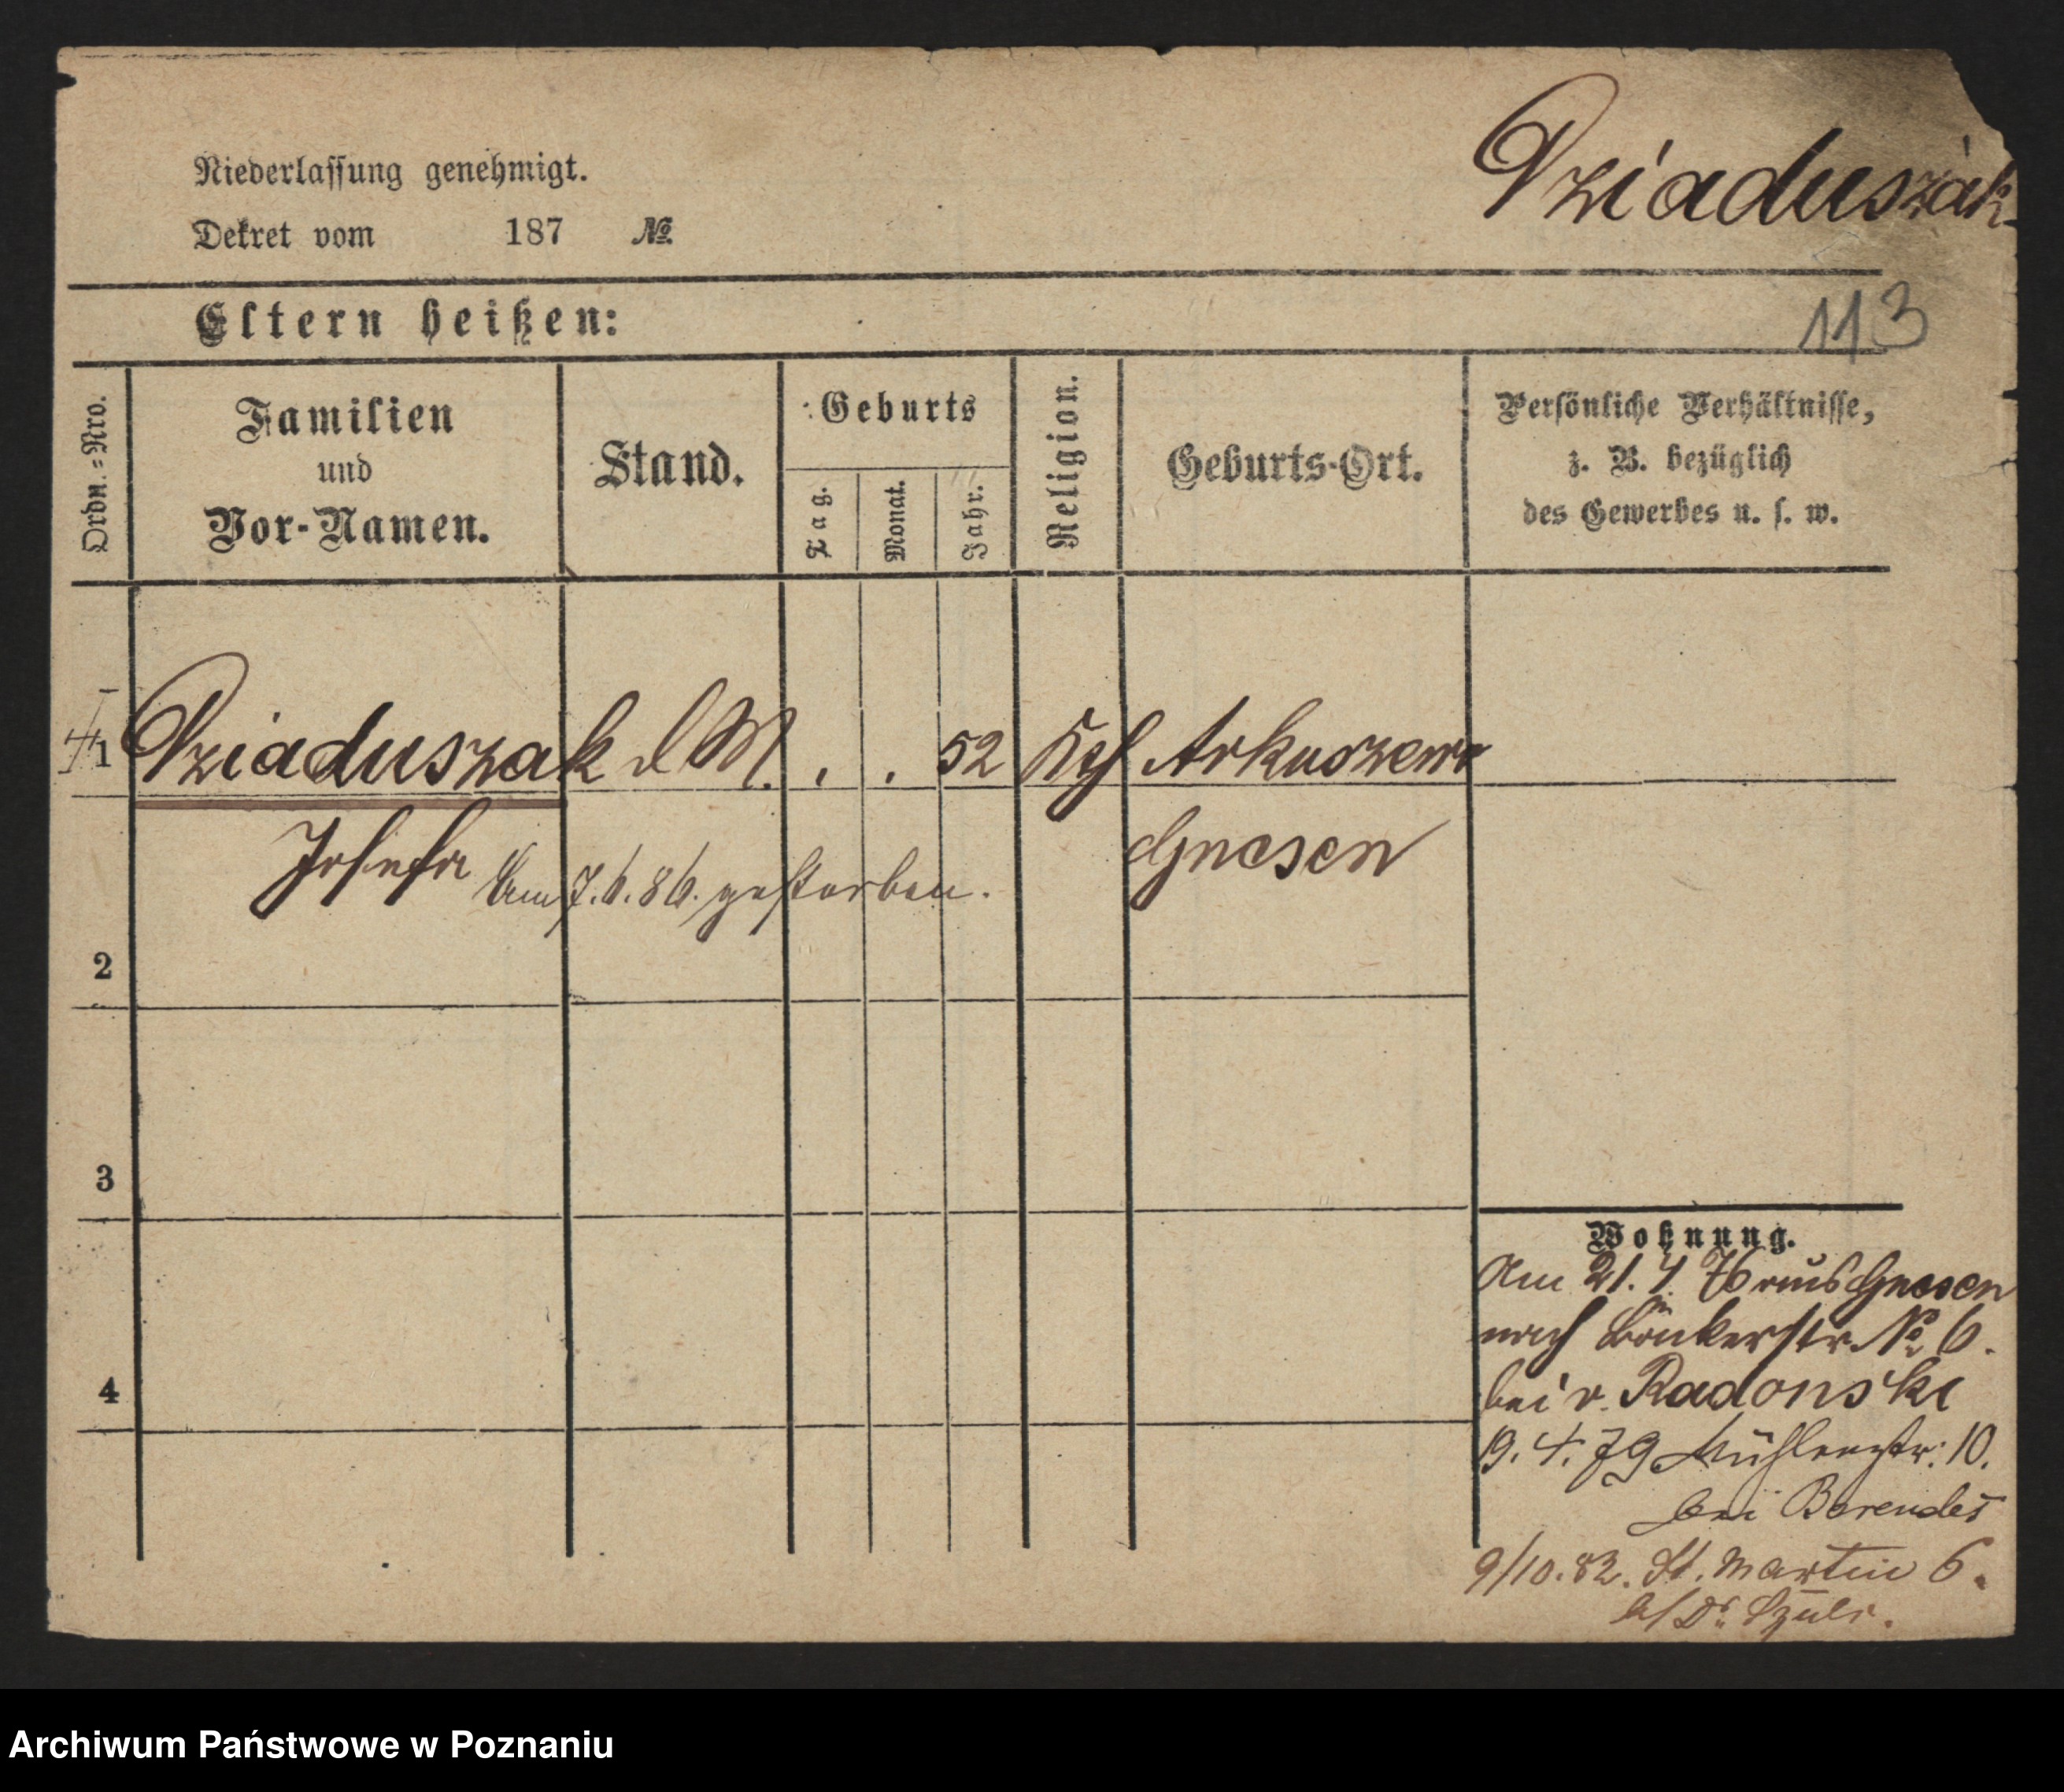 Dziaduszak
Niederlassung genehmigt.
Dekret vom 187 №
113
Eltern heißen:
Ordn.=Nro.
Familien
und
Vor-Namen.
Stand.
Geburts
Tag.
Monat.
Jahr.
Religion.
Geburts-Ort.
Persönliche Verhältnisse,
z. B. bezüglich
des Gewerbes u. s. w.
1 Dziaduszak d M. . . 52 Kth Arkuszewo
Josefa Am 7.6.86. gestorben. Gnesen
2
3
4
Wohnung.
Am 21. 4. 76 aus Gnesen
nach Bäckerstr. № 6.
bei v. Radonski
19. 4. 79 Mühlenstr: 10.
bei Barendes
9/10.82. St. Martin 6.
b/ Dr.
Archiwum Państwowe w Poznaniu